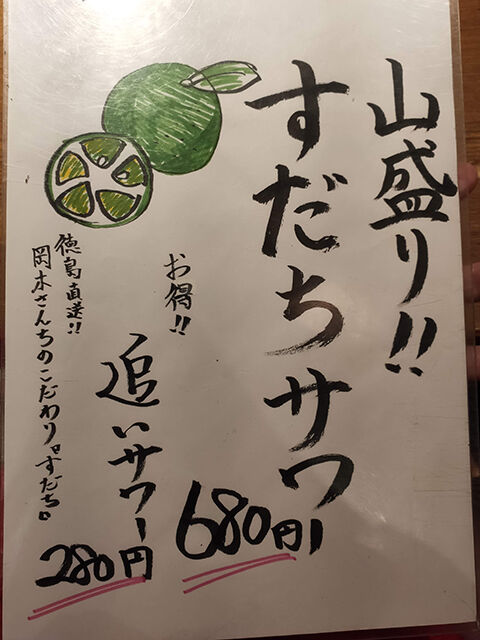 山盛り!!
すだちサワー
680円
お得!!
追いサワー
280円
徳島直送!!
岡本さんちのこだわり"すだち"